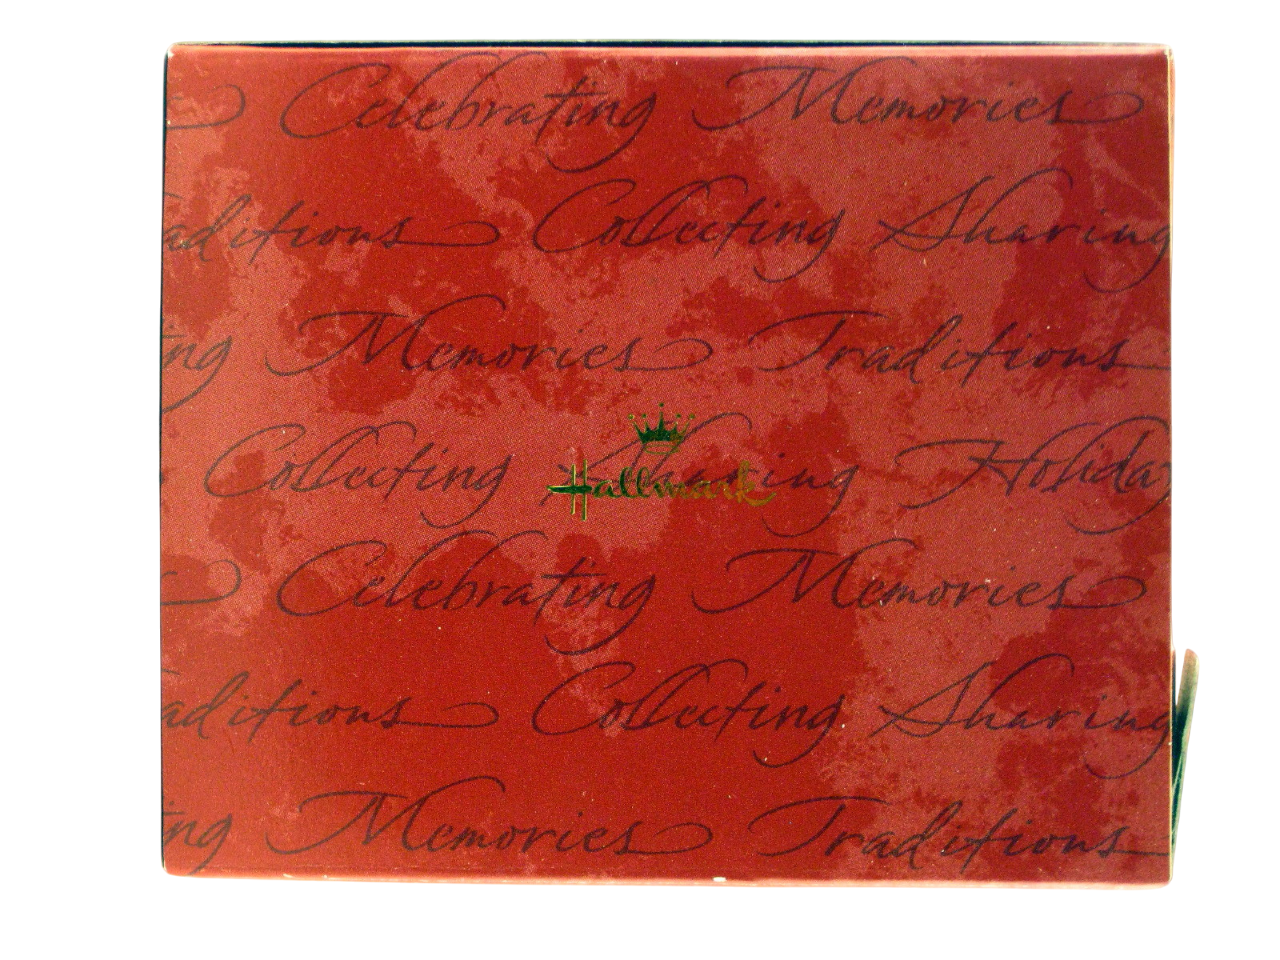 Celebrating Memories
aditions Collecting Sharing
ng Memories Traditions
Collecting Sharing Holiday
Hallmark
Celebrating Memories
aditions Collecting Sharing
ng Memories Traditions